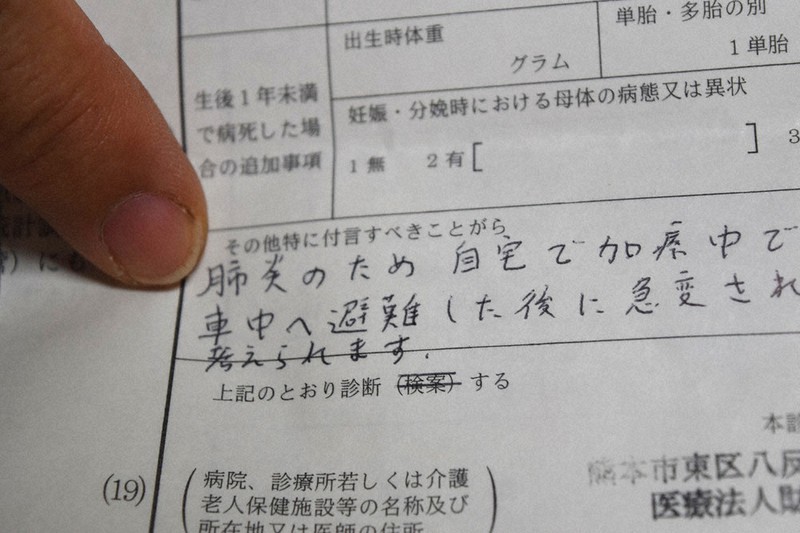 単胎・多胎の別
出生時体重
グラム
1 単胎
生後1年未満
で病死した場
合の追加事項
妊娠・分娩時における母体の病態又は異状
1 無 2 有[ ] 3
その他特に付言すべきことがら
肺炎のため 自宅で加療中で
車中へ避難した後に急変され
考えられます.
上記のとおり診断 (検案) する
本
(19)
病院、診療所若しくは介護
老人保健施設等の名称及び
所在地又は医師の住所
熊本市東区八反
医療法人財